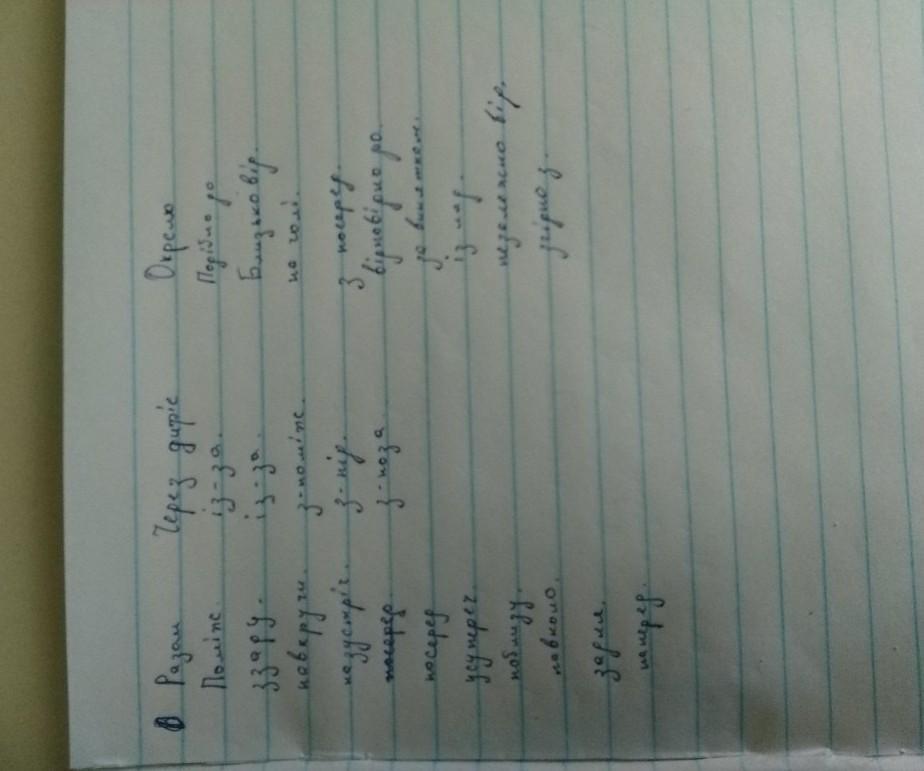 В Разом Через дефіс Окремо
Поміж. із-за. Подібно до
ззаду. із-за. Близько від.
навкруги. з-поміж. на чолі.
назустріч. з-під. з посеред.
посеред. з-поза відповідно до.
посеред за винятком.
усупереч. із над.
поблизу. незалежно від.
навколо. згідно з.
задля.
наперед.